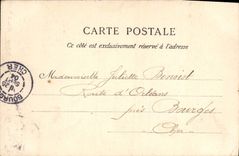 CARTE POSTALE
Ce côté est exclusivement réservé à l'adresse
Mademoiselle Juliette
Route d'Orléans
près Bourges
Cher
BOURGES
CHER